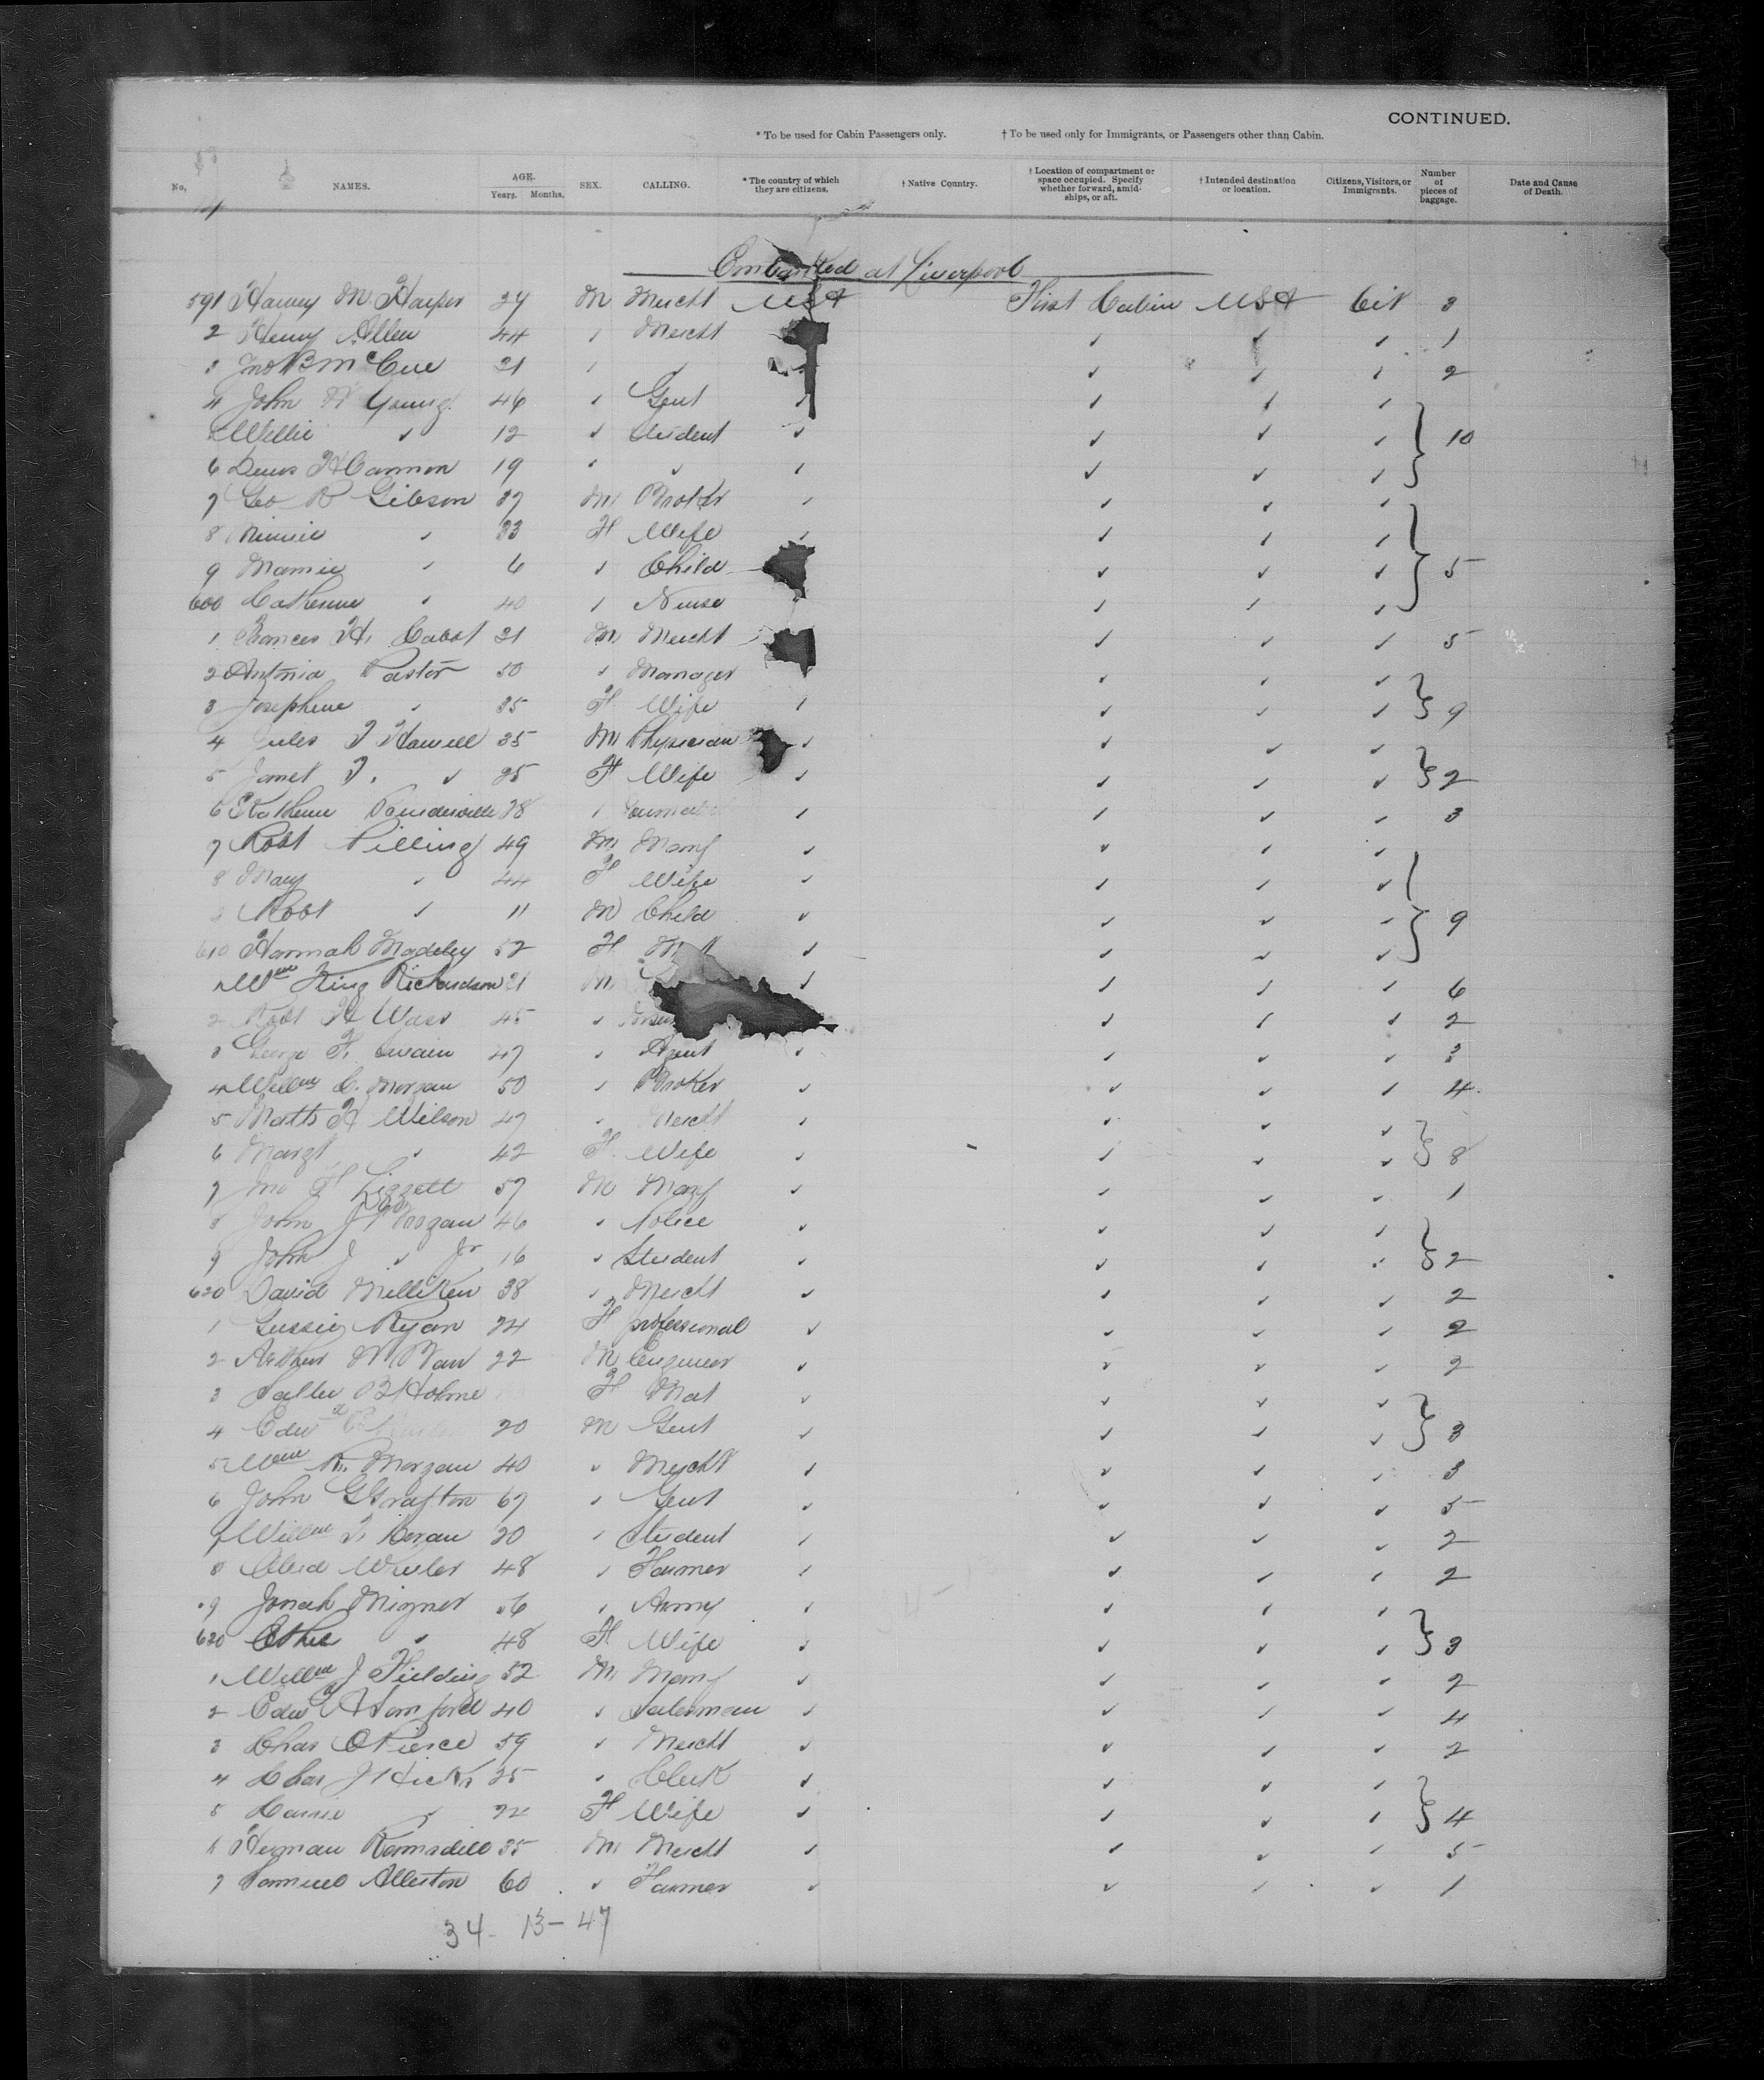 CONTINUED.
* To be used for Cabin Passengers only. † To be used only for Immigrants, or Passengers other than Cabin.
No. NAMES. AGE. Years. Months. SEX. CALLING. * The country of which they are citizens. † Native Country. † Location of compartment or space occupied. Specify whether forward, amidships, or aft. † Intended destination or location. Citizens, Visitors, or Immigrants. Number of pieces of baggage. Date and Cause of Death.
Embarked at Liverpool
591 Harvey M Harper M Mercht USA First Cabin USA Cit 3
2 Henry Allen 44 " Mercht ✓ ✓ ✓ 1
3 Jno B McCue ✓ ✓ ✓ 2
4 John W Young 46 ✓ Gent ✓ ✓ ✓ ✓
Willie ✓ 12 ✓ Student ✓ ✓ ✓ ✓ } 10
6 19 ✓ ✓ ✓ ✓ ✓ ✓
7 Geo R Gibson 37 M Broker ✓ ✓ ✓ ✓
8 Minnie ✓ 33 F Wife ✓ ✓ ✓ ✓
9 Mamie ✓ 6 ✓ Child ✓ ✓ ✓ } 5
600 Catherine ✓ 40 ✓ Nurse ✓ ✓ ✓
1 Frances H. Cabot M Mercht ✓ ✓ ✓ 5
2 Antonio Pastor 50 ✓ Manager ✓ ✓ ✓
3 Josephine ✓ 35 F Wife ✓ ✓ ✓ ✓ } 9
4 Jules 35 M Physician ✓ ✓ ✓ ✓
5 Janet ✓ 25 F Wife ✓ ✓ ✓ ✓ } 2
6 28 ✓ ✓ ✓ ✓ ✓ 3
7 Robt Pilling 49 M Manf ✓ ✓ ✓ ✓
8 Mary ✓ 44 F Wife ✓ ✓ ✓ ✓
Robt ✓ 11 M Child ✓ ✓ ✓ ✓ } 9
610 Hannah Madeley 52 F ✓ ✓ ✓ ✓
Wm King Richardson 21 M ✓ ✓ ✓ ✓ 6
2 Robt H Wass 45 ✓ ✓ ✓ ✓ 2
3 George F. Swain ✓ Agent ✓ ✓ ✓ ✓
4 Willm C. Morgan 50 ✓ Broker ✓ ✓ ✓ ✓ 4
5 Matth H Wilson 47 ✓ Mercht ✓ ✓ ✓ ✓
6 Margt ✓ 42 F Wife ✓ ✓ ✓ ✓ } 8
7 Jno F Liggett 57 M Manf ✓ ✓ ✓ ✓ 1
8 John J Morgan 46 ✓ Police ✓ ✓ ✓ ✓
9 John J ✓ Jr 16 ✓ Student ✓ ✓ ✓ ✓ } 2
620 David Milliken 38 ✓ Mercht ✓ ✓ ✓ ✓ 2
1 Gussie Ryan 24 F professional ✓ ✓ ✓ ✓ 2
2 Arthur 22 M Engineer ✓ ✓ ✓ ✓ 2
3 Sallie B Holme F Mat ✓ ✓ ✓ ✓
4 Edwd 20 M Gent ✓ ✓ ✓ ✓ } 3
5 Wm R. Morgan 40 ✓ Mercht ✓ ✓ ✓ ✓ 3
6 John G Grafton 67 ✓ Gent ✓ ✓ ✓ ✓ 5
7 Willm 20 ✓ Student ✓ ✓ ✓ ✓ 2
8 Wheeler 48 ✓ Farmer ✓ ✓ ✓ ✓ 2
9 Jonah Migner 56 ✓ Army ✓ ✓ ✓ ✓
620 Ethel ✓ 48 F Wife ✓ ✓ ✓ ✓ } 3
1 Willm J Fielding 52 M Manf ✓ ✓ ✓ ✓ 2
2 Edwd Hamford 40 ✓ Salesman ✓ ✓ ✓ ✓ 4
3 Chas O Pierce 59 ✓ Mercht ✓ ✓ ✓ ✓ 2
4 Chas J Hicks 25 ✓ Clerk ✓ ✓ ✓ ✓
5 Carrie ✓ F Wife ✓ ✓ ✓ ✓ } 4
6 Herman 35 M Mercht ✓ ✓ ✓ ✓ 5
7 Samuel Alleston 60 ✓ Farmer ✓ ✓ ✓ ✓ 1
34 - 13 - 47